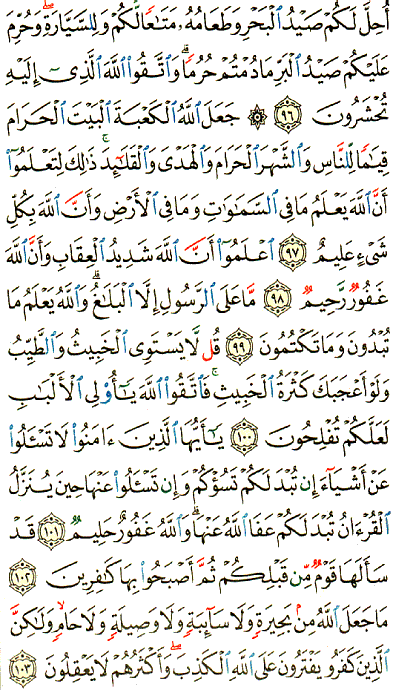 أُحِلَّ لَكُمْ صَيْدُ ٱلْبَحْرِ وَطَعَامُهُۥ مَتَـٰعًا لَّكُمْ وَلِلسَّيَّارَةِ ۖ وَحُرِّمَ
عَلَيْكُمْ صَيْدُ ٱلْبَرِّ مَا دُمْتُمْ حُرُمًا ۗ وَٱتَّقُوا۟ ٱللَّهَ ٱلَّذِىٓ إِلَيْهِ
تُحْشَرُونَ ٩٦ ۞ جَعَلَ ٱللَّهُ ٱلْكَعْبَةَ ٱلْبَيْتَ ٱلْحَرَامَ
قِيَـٰمًا لِّلنَّاسِ وَٱلشَّهْرَ ٱلْحَرَامَ وَٱلْهَدْىَ وَٱلْقَلَـٰٓئِدَ ۚ ذَٰلِكَ لِتَعْلَمُوٓا۟
أَنَّ ٱللَّهَ يَعْلَمُ مَا فِى ٱلسَّمَـٰوَٰتِ وَمَا فِى ٱلْأَرْضِ وَأَنَّ ٱللَّهَ بِكُلِّ
شَىْءٍ عَلِيمٌ ٩٧ ٱعْلَمُوٓا۟ أَنَّ ٱللَّهَ شَدِيدُ ٱلْعِقَابِ وَأَنَّ ٱللَّهَ
غَفُورٌ رَّحِيمٌ ٩٨ مَّا عَلَى ٱلرَّسُولِ إِلَّا ٱلْبَلَـٰغُ ۗ وَٱللَّهُ يَعْلَمُ مَا
تُبْدُونَ وَمَا تَكْتُمُونَ ٩٩ قُل لَّا يَسْتَوِى ٱلْخَبِيثُ وَٱلطَّيِّبُ
وَلَوْ أَعْجَبَكَ كَثْرَةُ ٱلْخَبِيثِ ۚ فَٱتَّقُوا۟ ٱللَّهَ يَـٰٓأُو۟لِى ٱلْأَلْبَـٰبِ
لَعَلَّكُمْ تُفْلِحُونَ ١٠٠ يَـٰٓأَيُّهَا ٱلَّذِينَ ءَامَنُوا۟ لَا تَسْـَٔلُوا۟
عَنْ أَشْيَآءَ إِن تُبْدَ لَكُمْ تَسُؤْكُمْ وَإِن تَسْـَٔلُوا۟ عَنْهَا حِينَ يُنَزَّلُ
ٱلْقُرْءَانُ تُبْدَ لَكُمْ عَفَا ٱللَّهُ عَنْهَا ۗ وَٱللَّهُ غَفُورٌ حَلِيمٌ ١٠١ قَدْ
سَأَلَهَا قَوْمٌ مِّن قَبْلِكُمْ ثُمَّ أَصْبَحُوا۟ بِهَا كَـٰفِرِينَ ١٠٢
مَا جَعَلَ ٱللَّهُ مِنۢ بَحِيرَةٍ وَلَا سَآئِبَةٍ وَلَا وَصِيلَةٍ وَلَا حَامٍ ۙ وَلَـٰكِنَّ
ٱلَّذِينَ كَفَرُوا۟ يَفْتَرُونَ عَلَى ٱللَّهِ ٱلْكَذِبَ ۖ وَأَكْثَرُهُمْ لَا يَعْقِلُونَ ١٠٣